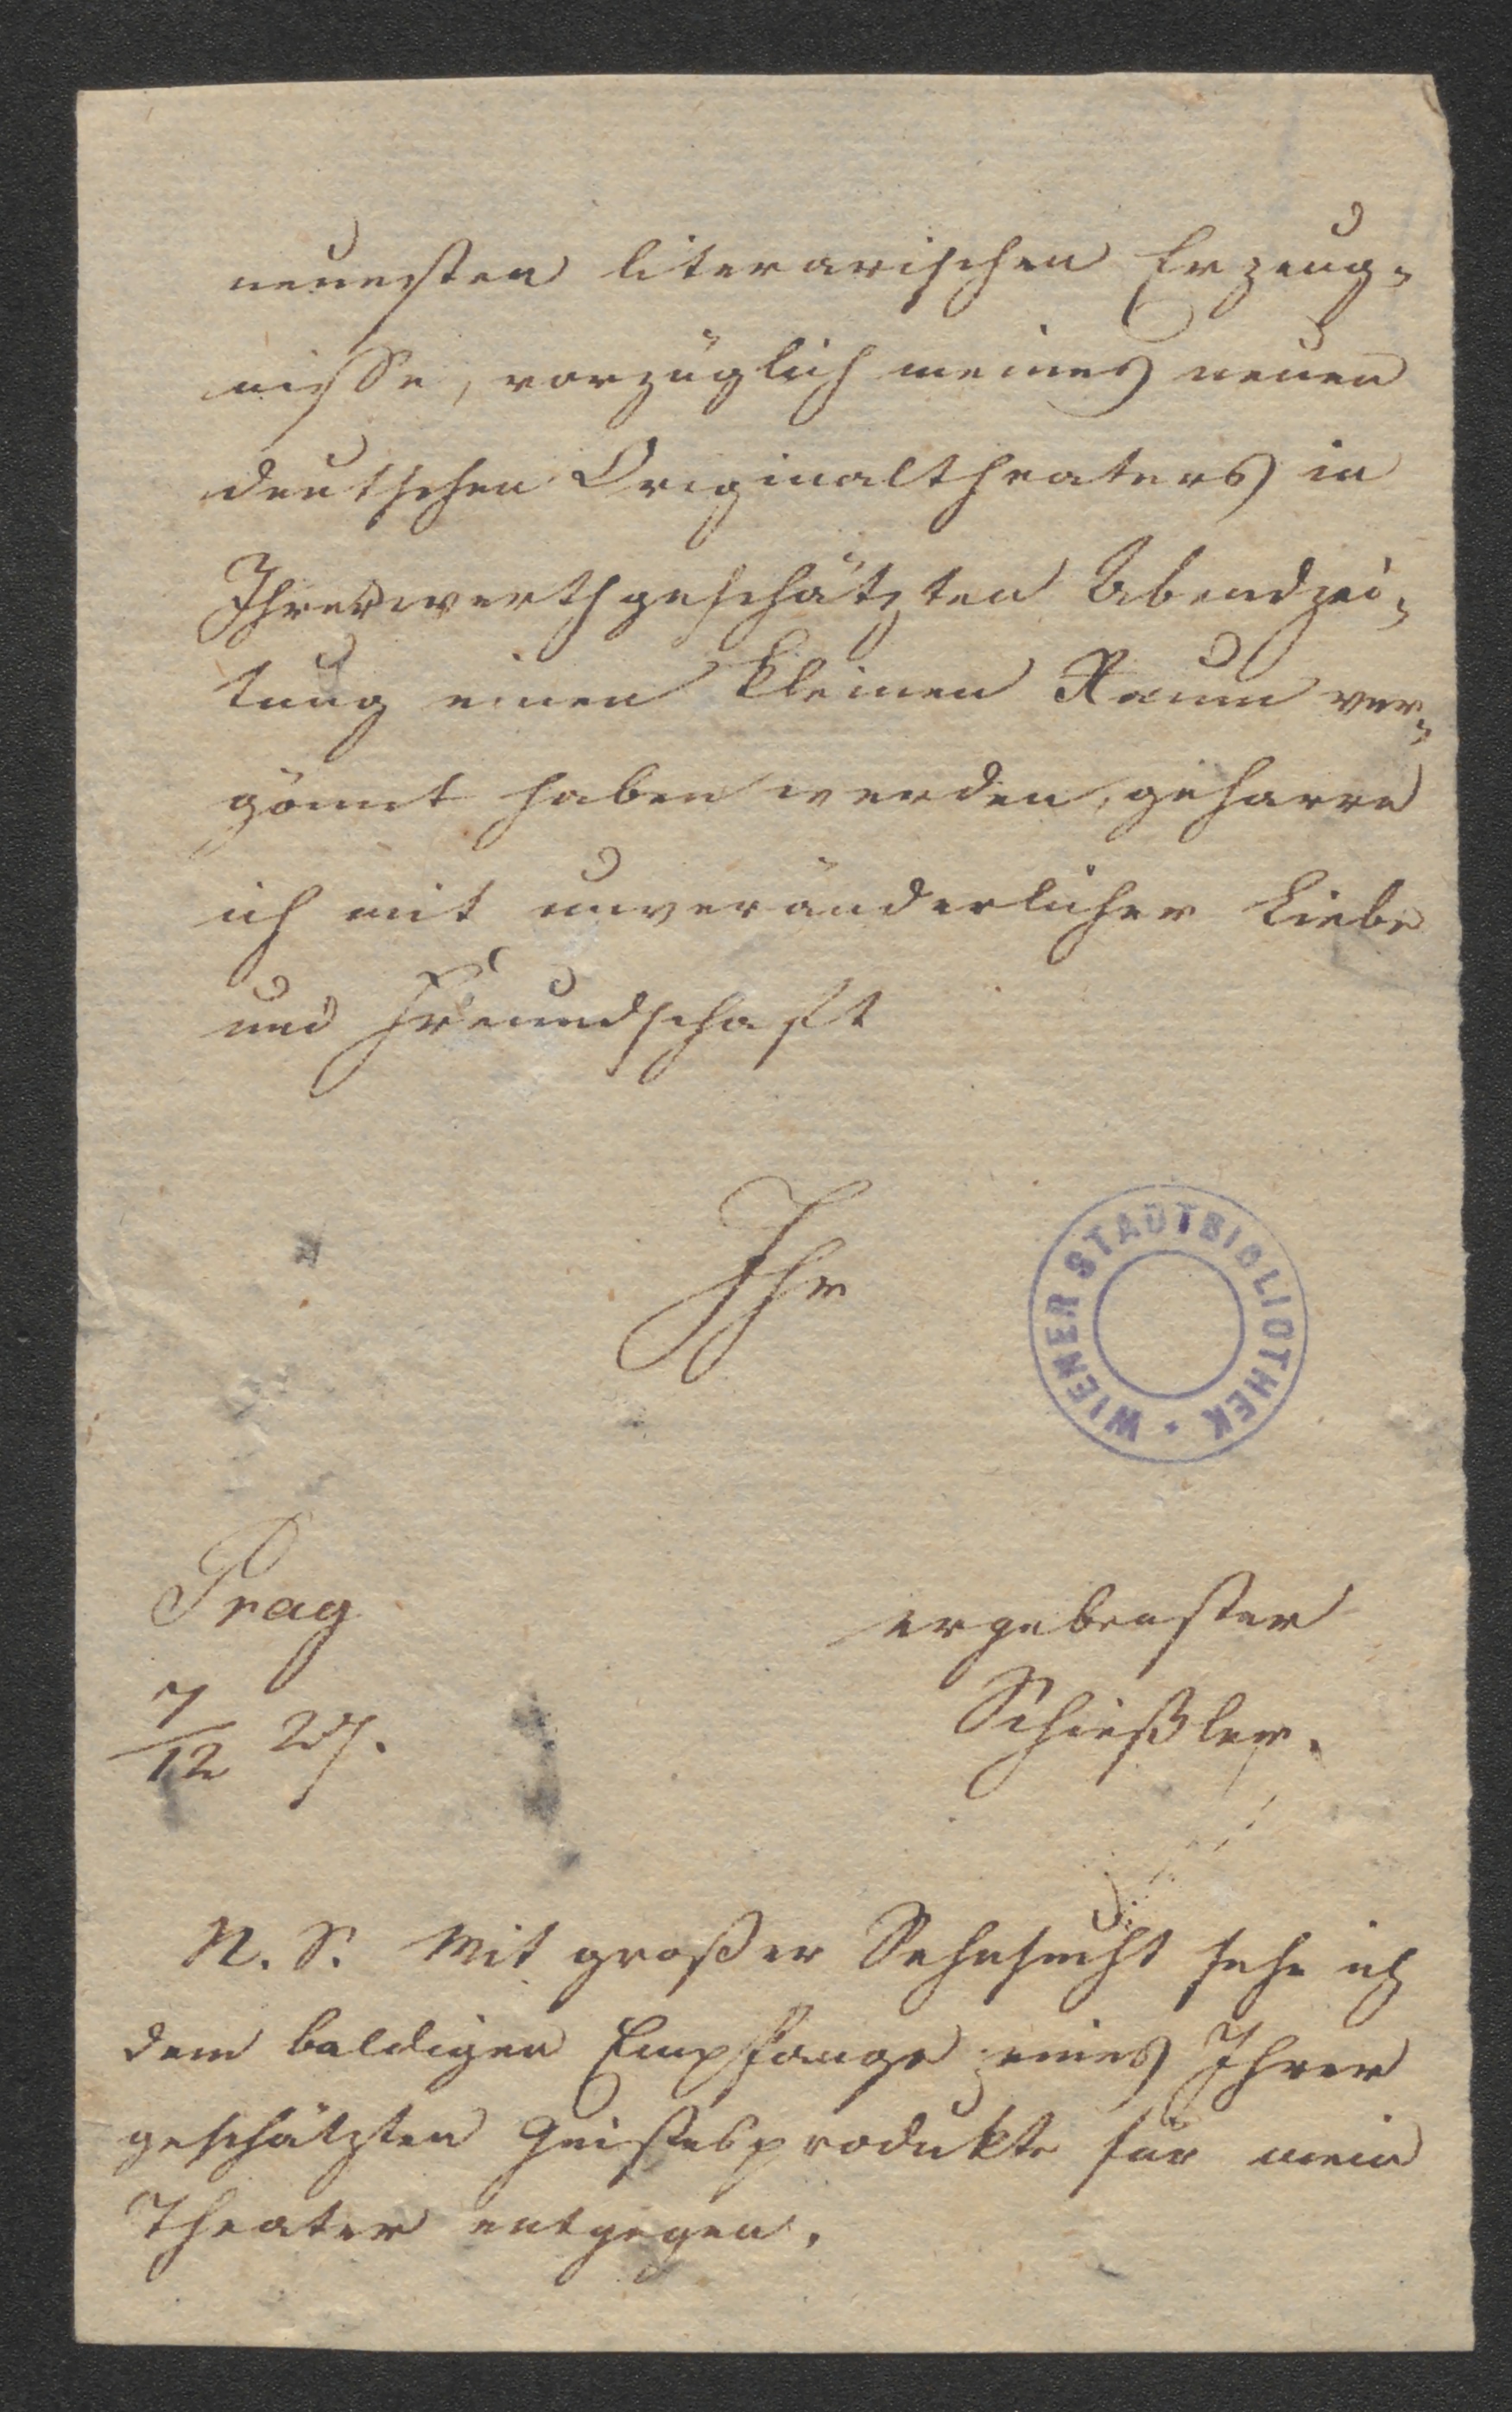 neuesten literarischen Erzeug-
nisse, vorzüglich meines neuen
deutschen Originaltheaters in
Ihrer werthgeschätzten Abendzei-
tung einen kleinen Raum ver-
gönnt haben werden, geharre
ich mit unveränderlicher Liebe
und Freundschaft
Ihr
WIENER STADTBIBLIOTHEK
Prag
ergebenster
7/12 27.
Schießler.
N. S. Mit großer Sehnsucht sehe ich
dem baldigen Empfange eines Ihrer
geschätzten Geistesprodukte für mein
Theater entgegen.